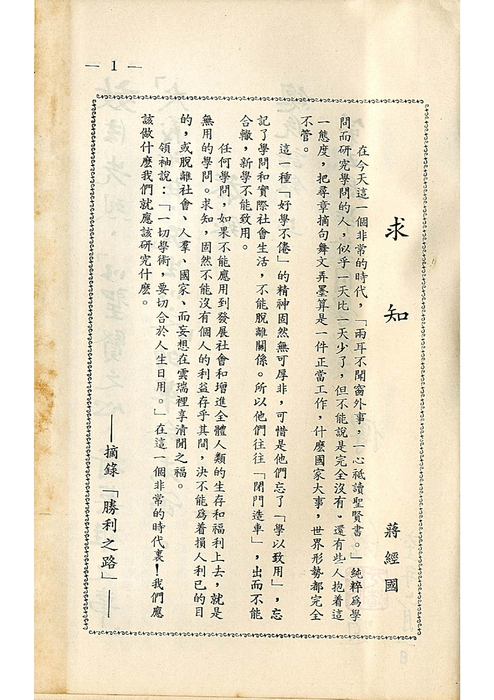 — 1 —
求知
蔣經國
在今天這一個非常的時代，「兩耳不聞窗外事，一心祗讀聖賢書。」純粹為學
問而研究學問的人，似乎一天比一天少了，但不能說是完全沒有、還有些人抱着這
一態度，把尋章摘句舞文弄墨算是一件正當工作，什麼國家大事，世界形勢都完全
不管。
這一種「好學不倦」的精神固然無可厚非，可惜是他們忘了「學以致用」，忘
記了學問和實際社會生活，不能脫離關係。所以他們往往「閉門造車」，出而不能
合轍，新學不能致用。
任何學問，如果不能應用到發展社會和增進全體人類的生存和福利上去，就是
無用的學問。求知，固然不能沒有個人的利益存乎其間，決不能為着損人利己的目
的，或脫離社會、人羣、國家、而妄想在雲端裡享清閒之福。
領袖說：「一切學術，要切合於人生日用。」在這一個非常的時代裏！我們應
該做什麼我們就應該研究什麼。
——摘錄「勝利之路」——